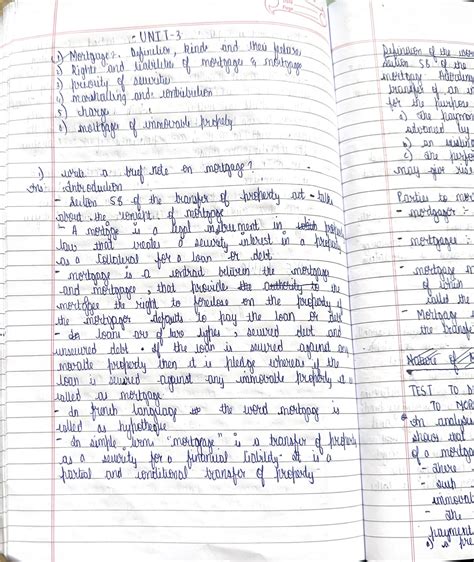 - UNIT-3
1) Mortgage:- Definition, kinds and their
2) Rights and liabilities of mortgagor & mortgagee
3) priority of securities
4) marshalling and contribution
5) charge
6) mortgage of immovable property
1) write a brief note on mortgage?
Ans Introduction
- Section 58 of the transfer of property act talks
about the concept of mortgage
- A mortgage is a legal instrument in property
law that creates a security interest in a property
as a collateral for a loan or debt
- mortgage is a contract between the mortgagor
and mortgagee, that provide the authority to the
mortgagee the right to foreclose on the property if
the mortgagor defaults to pay the loan or debt
- loans are of two types, secured debt and
unsecured debt. If the loan is secured against any
movable property then it is pledge whereas if the
loan is secured against any immovable property is a
called as mortgage
- In french language the word mortgage is
called as
- In simple term "mortgage" is a transfer of property
as a security for a financial liability. It is a
partial and conditional transfer of property
Definition of the
Section 58 of the
mortgage
transfer of an
for the purpose
a) the payment
advanced
b) an
c) the
may give rise
Parties to
- mortgagor :
- mortgagee :
- mortgage
of
called the
- Mortgage
the
Nature of
TEST TO
TO
In
shows
of a mortgage
- there
- such
immovable
- the
payment